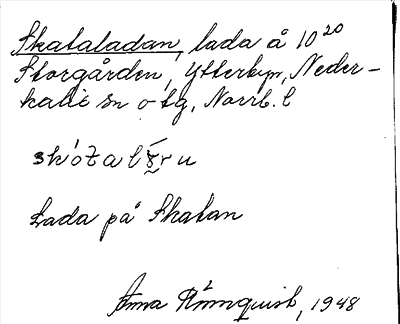 Skataladan, lada å 10²⁰
Storgården, Ytterbyn, Neder-
kalix sn o tg, Norrb. l
Lada på Skatan
Anna Rönnquist, 1948